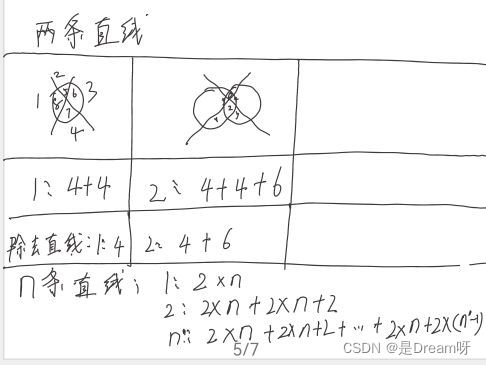 两条直线
1 2 3 4 5 6 7 8
2 3 4
1: 4+4
2: 4+4+6
除去直线: 1: 4
2: 4+6
n条直线: 1: 2×n
2: 2×n+2×n+2
n': 2×n+2×n+2+…+2×n+2×(n'-1)
5/7
CSDN @是Dream呀